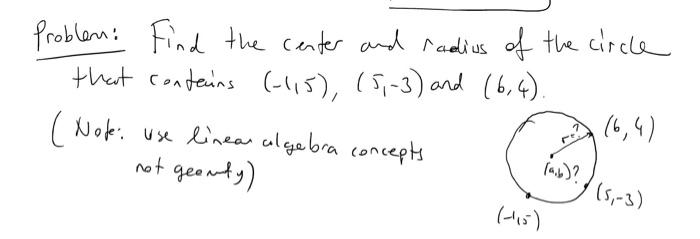 Problem: Find the center and radius of the circle
that contains (-1,5), (5,-3) and (6,4).
(Note: use linear algebra concepts
not geomty)
r=?
(6,4)
(a,b)?
(5,-3)
(-1,5)